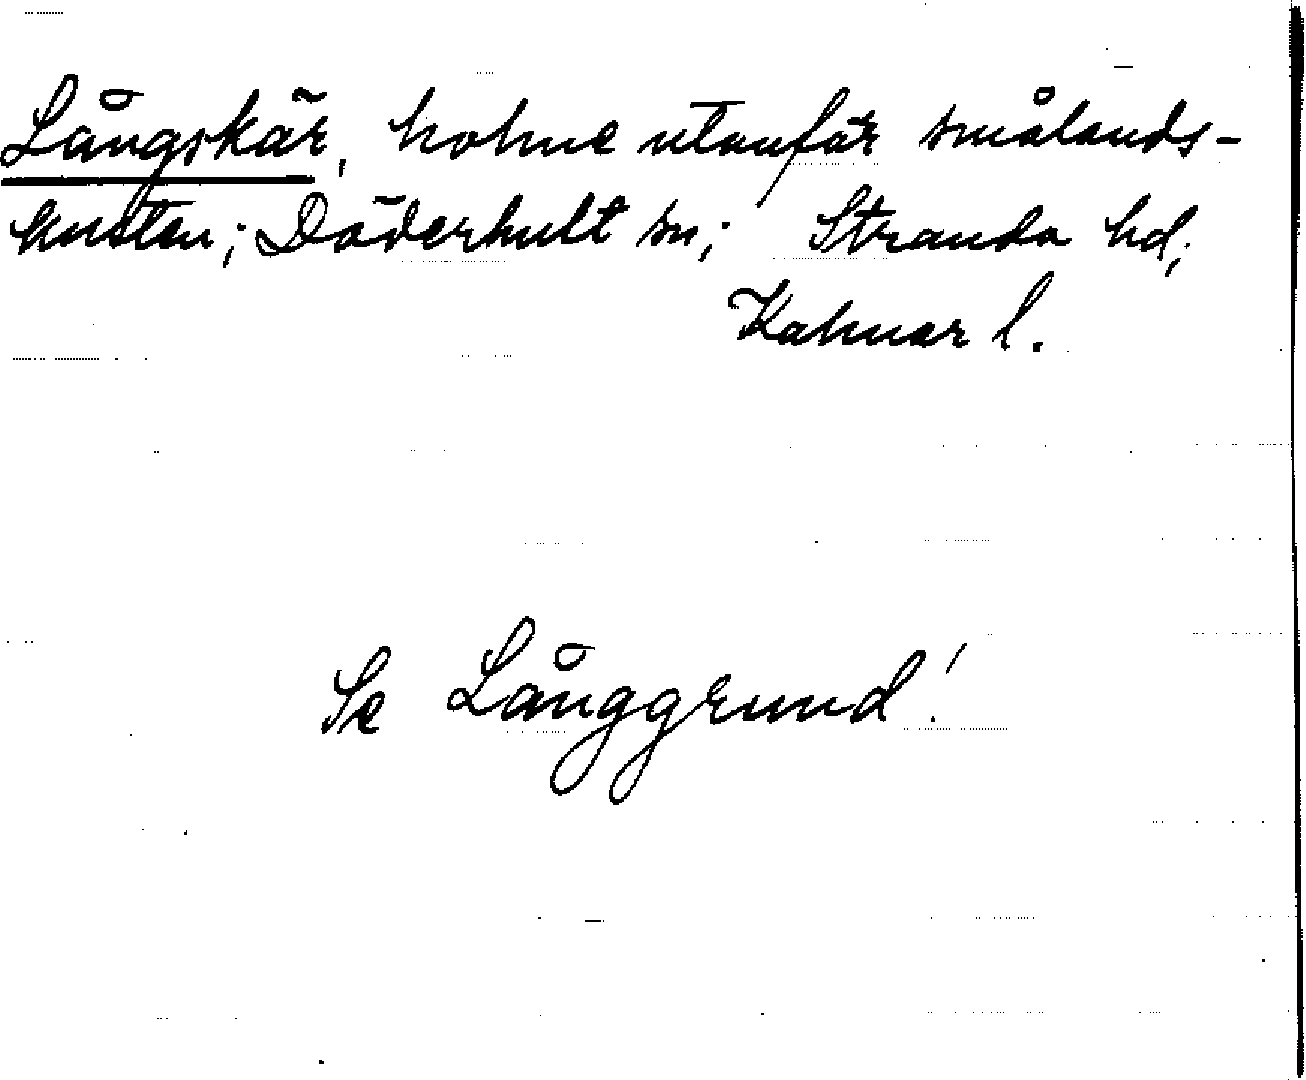 Långskär, holme utanför smålands-
kusten; Döderhult sn; Stranda hd;
Kalmar l.
Se Långgrund!